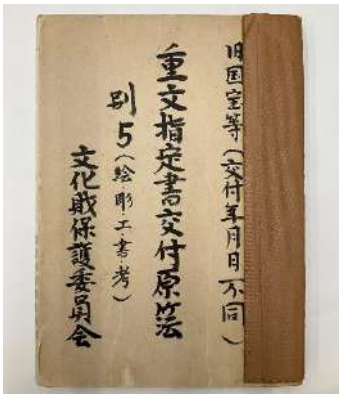 旧国宝等（交付年月日不同）
重文指定書交付原簿
別5（絵・彫・工・書・考）
文化財保護委員会